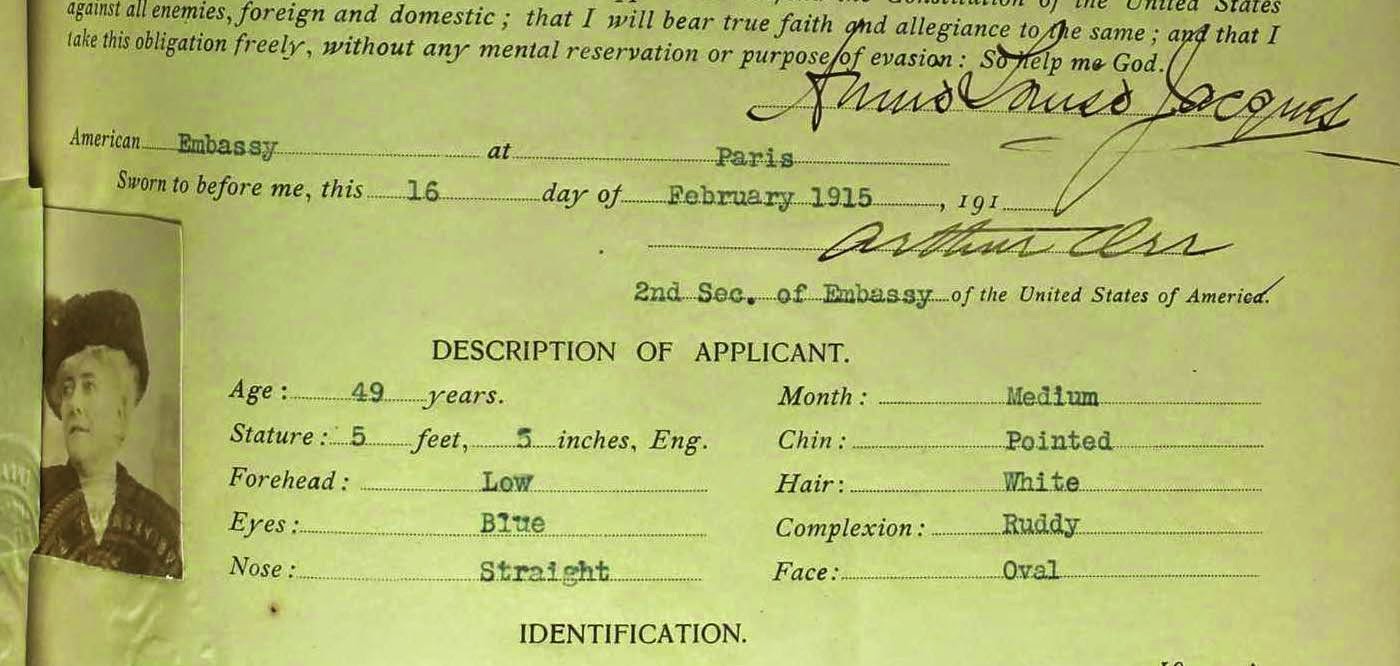 against all enemies, foreign and domestic; that I will bear true faith and allegiance to the same; and that I
take this obligation freely, without any mental reservation or purpose of evasion: So help me God.
Louise Jacques
American Embassy at Paris
Sworn to before me, this 16 day of February 1915, 191
Arthur Orr
2nd Sec. of Embassy of the United States of America.
DESCRIPTION OF APPLICANT.
Age: 49 years. Month: Medium
Stature: 5 feet, 5 inches, Eng. Chin: Pointed
Forehead: Low Hair: White
Eyes: Blue Complexion: Ruddy
Nose: Straight Face: Oval
IDENTIFICATION.